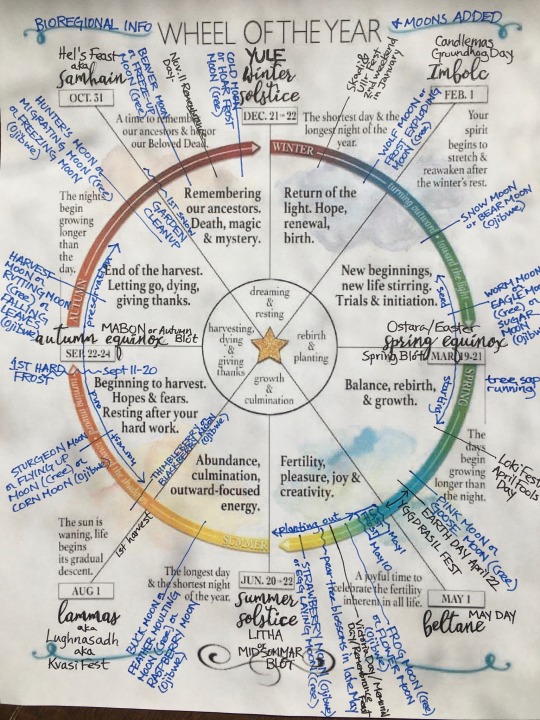 BIOREGIONAL INFO
WHEEL OF THE YEAR
& MOONS ADDED
Hel's Feast
aka
Samhain
OCT. 31
A time to remember
our ancestors & honor
our Beloved Dead.
BEAVER MOON
or FREEZE-UP
MOON (Cree)
Nov. 11 Remembrance
COLD MOON
or HOAR FROST
MOON (Cree)
YULE
Winter
solstice
DEC. 21-22
The shortest day & the
longest night of the
year.
Skadi &
Ullr Fest
2nd weekend
in January
Candlemas
Groundhog Day
Imbolc
FEB. 1
Your
spirit
begins to
stretch &
reawaken after
the winter's rest.
WOLF MOON or
FROST EXPLODING
MOON (Cree)
SNOW MOON
or BEAR MOON
(Ojibwe)
HUNTER'S MOON or
MIGRATING MOON (Cree)
or FREEZING MOON
(Ojibwe)
1st SNOW
GARDEN
CLEANUP
WINTER
turning outward toward the light
Remembering
our ancestors.
Death, magic
& mystery.
Return of the
light. Hope,
renewal,
birth.
The nights
begin
growing
longer
than
the
day.
HARVEST
MOON or
RUTTING MOON
(Cree) or
FALLING
LEAVES
(Ojibwe)
AUTUMN
preservation
End of the harvest.
Letting go, dying,
giving thanks.
New beginnings,
new life stirring.
Trials & initiation.
seed
WORM MOON or
EAGLE MOON
(Cree) or
SUGAR
MOON
(Ojibwe)
dreaming
&
resting
harvesting,
dying
&
giving
thanks
rebirth
&
planting
growth
&
culmination
MABON or Autumn
Blót
autumn equinox
SEP. 22-24
Ostara/Easter
spring equinox
Spring Blót
MAR. 19-21
1ST HARD
FROST
Sept 11-20
Beginning to harvest.
Hopes & fears.
Resting after your
hard work.
Balance, rebirth,
& growth.
starting
SPRING
tree sap
running
turning inward toward the shadows
and
harvest
STURGEON MOON
or FLYING UP
MOON (Cree) or
CORN MOON (Ojibwe)
THIMBLEBERRY or
BLACKBERRY MOON
(Ojibwe)
Abundance,
culmination,
outward-focused
energy.
Fertility,
pleasure, joy &
creativity.
The
days
begin
growing
longer than
the night.
Loki Fest
April Fools
Day
PINK MOON or
GOOSE MOON (Cree)
EARTH DAY April 22
YGGDRASIL FEST
The sun is
waning, life
begins
its gradual
descent.
1st harvest
SUMMER
planting out
May 1
May 10
AUG 1
lammas
aka
Lughnasadh
aka
Kvasi Fest
The longest day
& the shortest night
of the year.
BUCK MOON or
FEATHER MOULTING
MOON (Cree) or
RASPBERRY MOON
(Ojibwe)
JUN. 20-22
summer
solstice
LITHA
or
MIDSOMMAR
BLÓT
STRAWBERRY MOON (Ojibwe)
or EGG LAYING MOON (Cree)
pear tree blossoms in late May
Victoria Day / Memorial
Day / Remembrance
Feast
A joyful time to
celebrate the fertility
inherent in all life.
FLOWER MOON
(Ojibwe) or
FROG MOON
(Cree)
MAY 1
beltane
MAY DAY